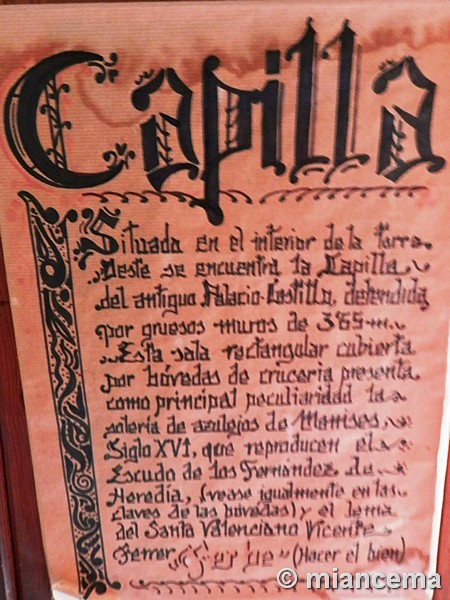 Capilla
Situada en el interior de la torre
Oeste se encuentra la Capilla
del antiguo Palacio-Castillo, defendida
por gruesos muros de 3'65 m.
Esta sala rectangular cubierta
por bóvedas de crucería presenta
como principal peculiaridad la
solería de azulejos de Manises,
Siglo XVI, que reproducen el
Escudo de los Fernández de
Heredia, (vease igualmente en las
claves de las bóvedas) y el lema
del Santo Valenciano Vicente
Ferrer (Hacer el bien)
© miancema